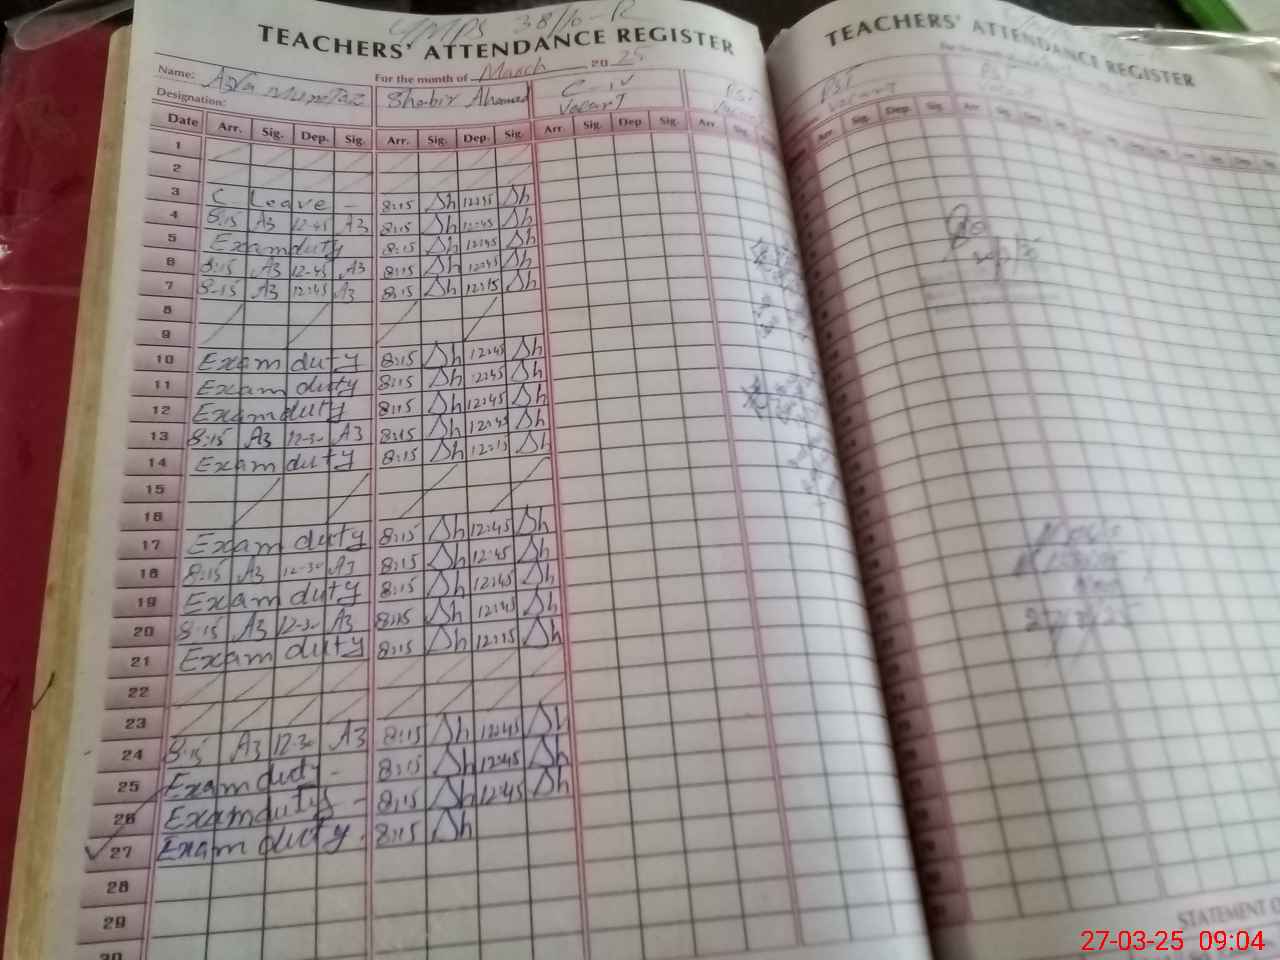 GMPS 38/6-R
TEACHERS' ATTENDANCE REGISTER
Name: Azra Mumtaz For the month of March 20 25
Designation: Shabir Ahmed C-IV PST
Vacant
Date Arr. Sig. Dep. Sig. Arr. Sig. Dep. Sig. Arr. Sig. Dep. Sig. Arr. Sig.
1
2
3 C Leave - 8:15 Sh 12:45 Sh
4 8:15 Az 12-45 Az 8:15 Sh 12:45 Sh
5 Exam duty 8:15 Sh 12:45 Sh
6 8:15 Az 12-45 Az 8:15 Sh 12:45 Sh
7 8:15 Az 12:45 Az 8:15 Sh 12:15 Sh
8
9
10 Exam duty 8:15 Sh 12:45 Sh
11 Exam duty 8:15 Sh 12:45 Sh
12 Exam duty 8:15 Sh 12:45 Sh
13 8:15 Az 12-30 Az 8:15 Sh 12:45 Sh
14 Exam duty 8:15 Sh 12:15 Sh
15
16
17 Exam duty 8:15 Sh 12:45 Sh
18 8:15 Az 12-30 Az 8:15 Sh 12:45 Sh
19 Exam duty 8:15 Sh 12:45 Sh
20 8:15 Az 12-30 Az 8:15 Sh 12:45 Sh
21 Exam duty 8:15 Sh 12:15 Sh
22
23
24 8:15 Az 12-30 Az 8:15 Sh 12:45 Sh
25 Exam duty - 8:15 Sh 12:45 Sh
26 Exam duty - 8:15 Sh 12:45 Sh
27 Exam duty. 8:15 Sh
28
29
30
TEACHERS' ATTENDANCE REGISTER
For the month of
PST PST
Vacant Vacant
Arr. Sig. Dep. Sig. Arr. Sig.
27/3/25
STATEMENT O
27-03-25 09:04